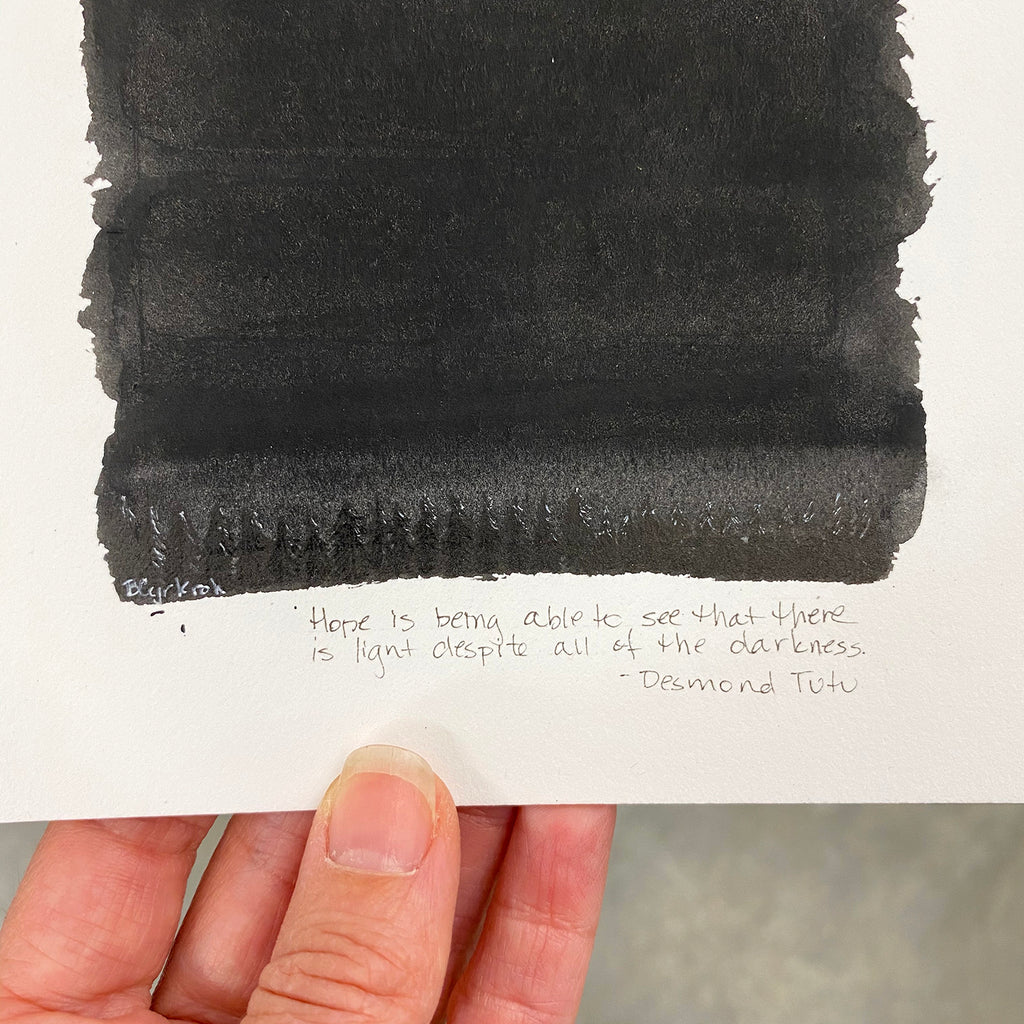 BCyrkrok
Hope is being able to see that there
is light despite all of the darkness.
- Desmond Tutu